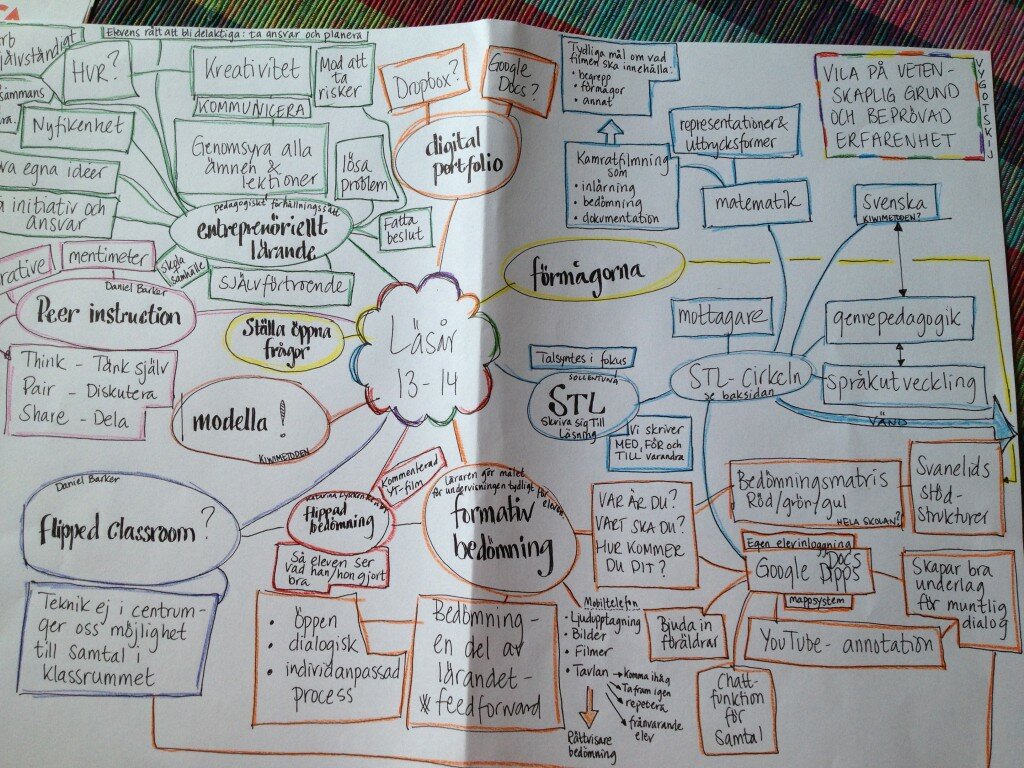 Elevens rätt att bli delaktiga: ta ansvar och planera
självständigt
HUR?
Kreativitet
Mod att
ta
risker
KOMMUNICERA
Nyfikenhet
Genomsyra alla
ämnen &
lektioner
lösa
problem
egna idéer
initiativ och
ansvar
pedagogiskt förhållningssätt
entreprenöriellt
lärande
Fatta
beslut
skola
samhälle
SJÄLVförtroende
Dropbox?
Google
Docs?
digital
portfolio
Tydliga mål om vad
filmen ska innehålla:
• begrepp
• förmågor
• annat
Kamratfilmning
som
• inlärning
• bedömning
• dokumentation
representationer &
uttrycksformer
matematik
VILA PÅ VETEN-
SKAPLIG GRUND
OCH BEPRÖVAD
ERFARENHET
VYGOTSKIJ
Svenska
KIWIMETODEN?
genrepedagogik
språkutveckling
förmågorna
mottagare
STL-Cirkeln
se baksidan
VÄND
Talsyntes i fokus
SOLLENTUNA
STL
Skriva sig Till
Läsning
Vi skriver
MED, FÖR och
TILL varandra
Läsår
13-14
mentimeter
Daniel Barker
Peer instruction
Think - Tänk själv
Pair - Diskutera
Share - Dela
Ställa öppna
frågor
modella!
KIWIMETODEN
Daniel Barker
flipped classroom?
Teknik ej i centrum -
ger oss möjlighet
till samtal i
klassrummet
Kommenterad
YT-film
flippad
bedömning
Så eleven ser
vad han/hon gjort
bra
Läraren gör målet
för undervisningen tydligt för
eleven
formativ
bedömning
• öppen
• dialogisk
• individanpassad
process
Bedömning -
en del av
lärandet -
feedforward
VAR ÄR DU?
VART SKA DU?
HUR KOMMER
DU DIT?
Bedömningsmatris
Röd/grön/gul
HELA SKOLAN?
Svanelids
Stöd-
strukturer
Egen elevinloggning
Google Docs
Apps
mappsystem
Skapar bra
underlag
för muntlig
dialog
YouTube - annotation
Bjuda in
föräldrar
Chatt-
funktion
för
samtal
Mobiltelefon
• Ljudupptagning
• Bilder
• Filmer
• Tavlan
→ Komma ihåg
→ Ta fram igen
→ repetera
→ frånvarande
elev
Rättvisare
bedömning